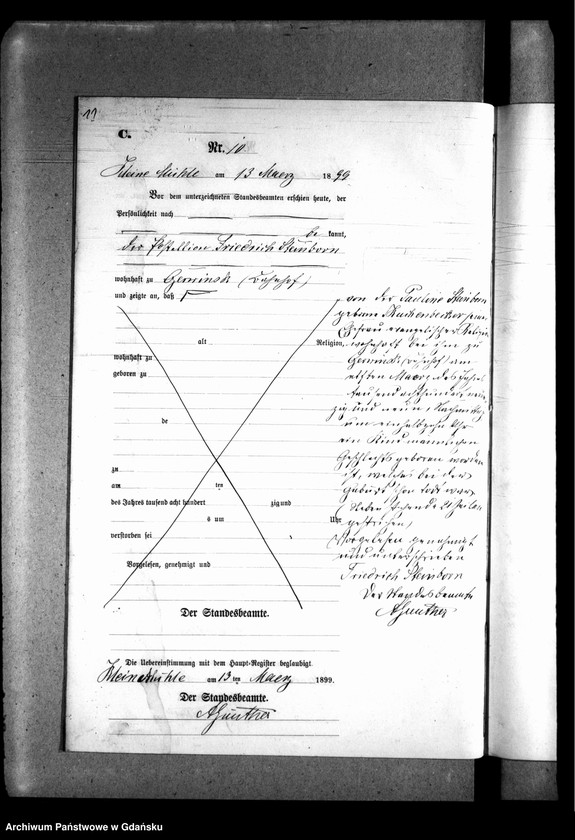 C.
Nr. 10
Kleine Mühle am 13 Maerz 1899.
Vor dem unterzeichneten Standesbeamten erschien heute, der
Persönlichkeit nach
be kannt,
der Postillion Friedrich Steinborn
wohnhaft zu (Bahnhof)
und zeigte an, daß
alt Religion,
wohnhaft zu
geboren zu
de
zu
am ten
des Jahres tausend acht hundert zig und
s um Uhr
verstorben sei
Vorgelesen, genehmigt und
von der Pauline Steinborn
geborene seiner
Ehefrau evangelischer Religion
wohnhaft bei ihm zu
(Bahnhof) am
elften Maerz des Jahres
tausend achthundert neun
zig und neun, Nachmittag
um einhalbzehn Uhr
ein Kind maennlichen
Geschlechts geboren worden
ist, welches bei der
Geburt schon todt war
gestrichen,
Vorgelesen genehmigt
und unterschrieben
Friedrich Steinborn
Der Standesbeamte
AGunther
Der Standesbeamte.
Die Uebereinstimmung mit dem Haupt-Register beglaubigt
Kleine Mühle am 13 ten Maerz 1899.
Der Standesbeamte.
AGunther
Archiwum Państwowe w Gdańsku